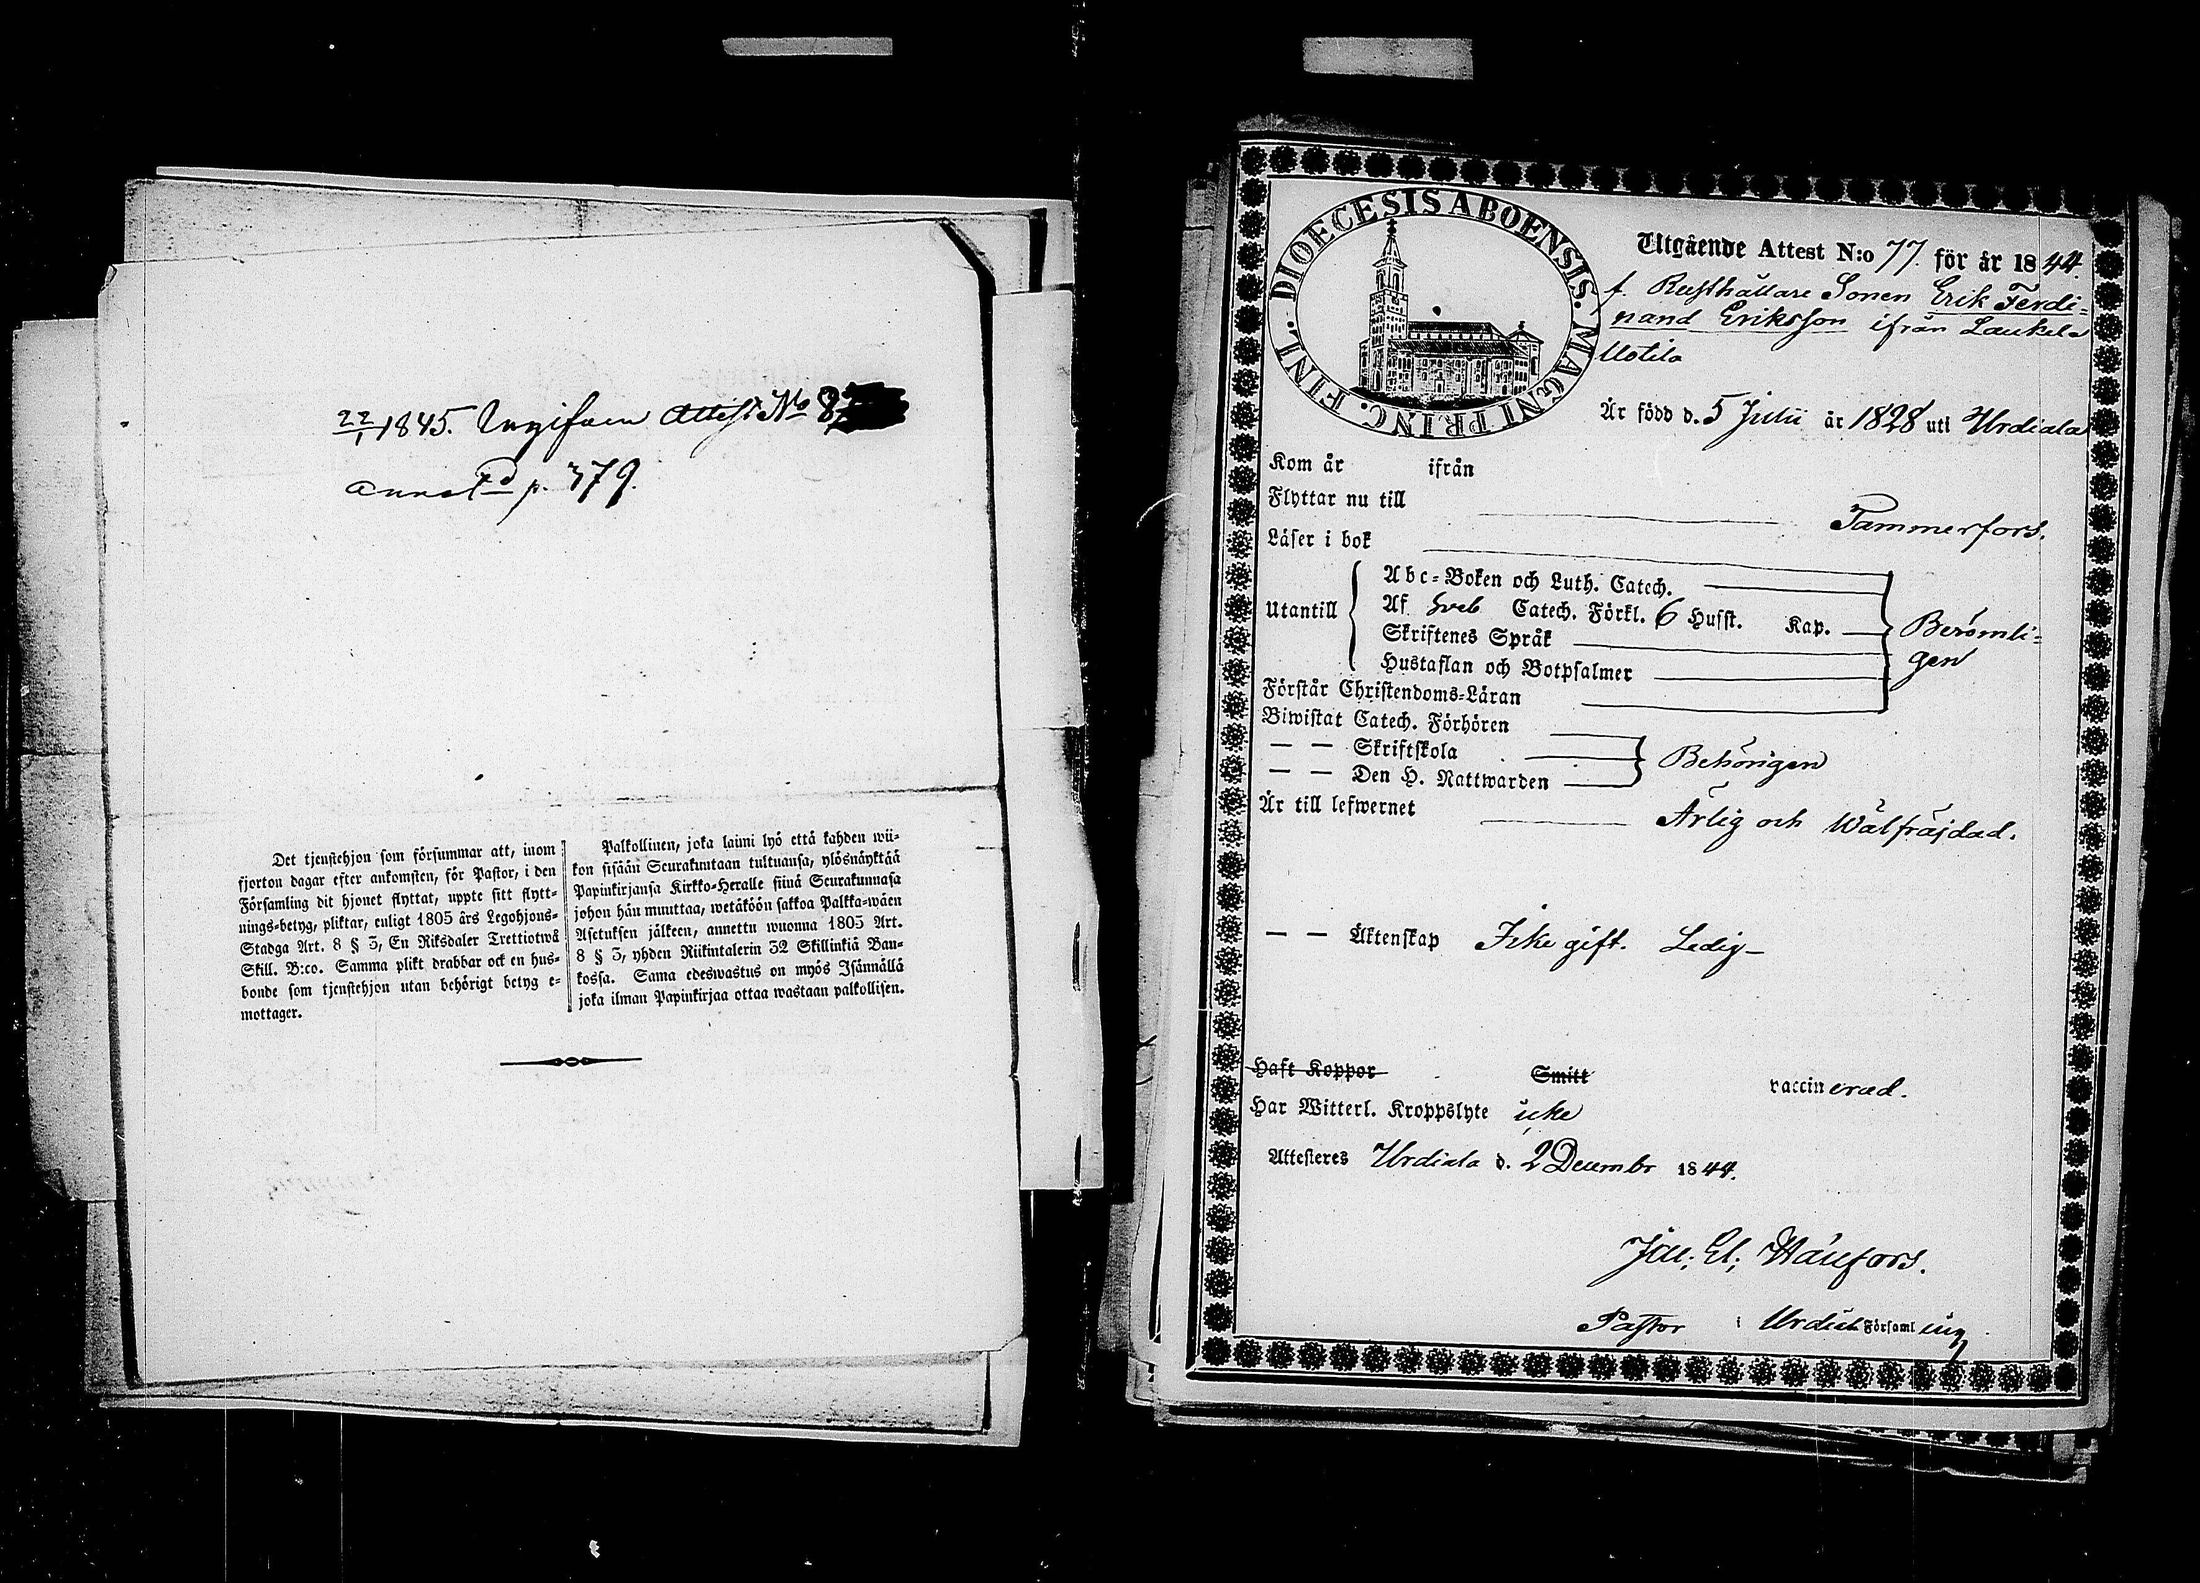 22/1 1845. Ingifven Attest No 8
annotd p. 379.
Det tjenstehjon som försummar att, inom
fjorton dagar efter ankomsten, för Pastor, i den
Församling dit hjonet flyttat, uppte sitt flytt-
nings-betyg, pliktar, enligt 1805 års Legohjons-
Stadga Art. 8 § 3, En Riksdaler Trettiotwå
Skill. B:co. Samma plikt drabbar ock en hus-
bonde som tjenstehjon utan behörigt betyg e-
mottager.
Palkollinen, joka laimi lyö että kahden wii-
kon sisään Seurakuntaan tultuansa, ylösnäyktää
Papinkirjansa Kirkko-Heralle siinä Seurakunnasa
johon hän muuttaa, wetäköön sakkoa Palkka-wäen
Asetuksen jälkeen, annettu wuonna 1805 Art.
8 § 3, yhden Riikintalerin 32 Skillinkiä Ban-
kossa. Sama edeswastus on myös Isännällä
joka ilman Papinkirjaa ottaa wastaan palkollisen.
DIOECESIS ABOENSIS. MAGNI PRINC. FINL.
Utgående Attest N:o 77. för år 1844.
f. Rusthållare Sonen Erik Ferdi=
nand Eriksson ifrån Laukela
Uotila
Är född d. 5 Julii år 1828 uti Urdiala
Kom år ifrån
Flyttar nu till Tammerfors.
Läser i bok
Utantill
Abc=Boken och Luth. Catech.
Af Sveb Catech. Förkl. 6 Husst. Kap.
Skriftenes Språk
Hustaflan och Botpsalmer
Berömli=
gen
Förstår Christendoms-Läran
Biwistat Catech. Förhören
— — Skriftskola Behörigen
— — Den H. Nattwarden
Är till lefwernet Ärlig och Wälfräjdad.
— — Äktenskap Icke gift. Ledig—
Haft Koppor Smitt vaccinerad.
Har Witterl. Kroppslyte icke
Attesteres Urdiala d. 2 Decembr 1844.
Pastor i Urdiala Församling